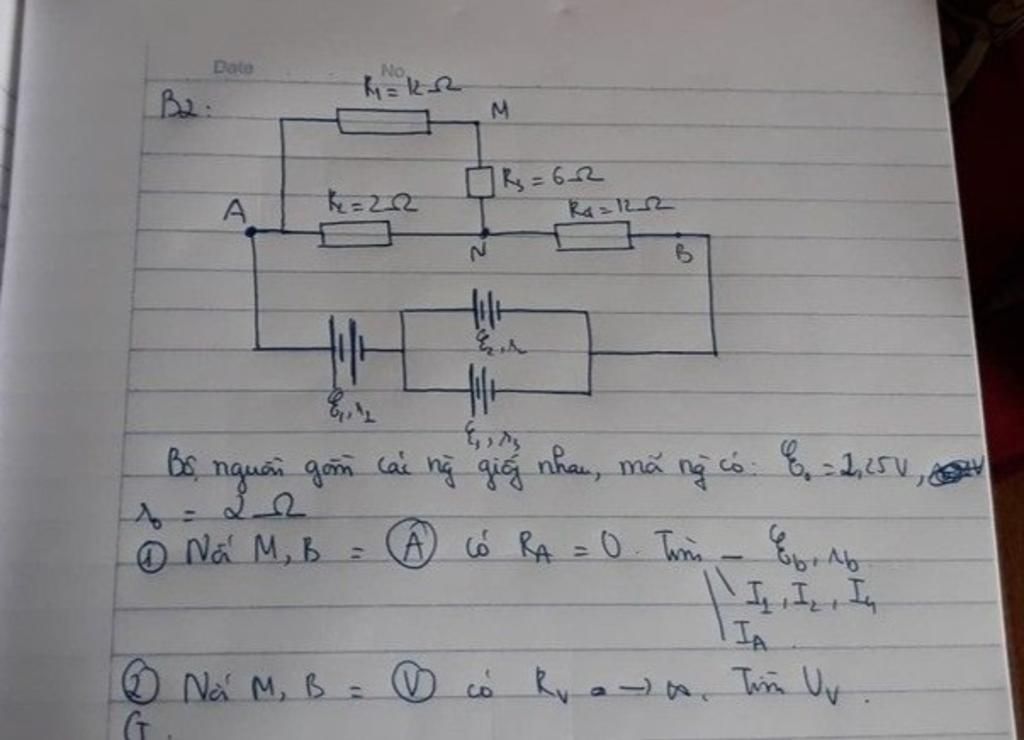 Date No.
B2:
R₁ = 12Ω M
R₃ = 6Ω
A R₂ = 2Ω R₄ = 12Ω
N B
ℰ₂, r
ℰ₁, r₂
ℰ₃, r₃
Bộ nguồn gồm các ng giống nhau, mỗi ng có: ℰ₀ = 2,25V,
r₀ = 2Ω
① Nối M, B = Ⓐ có R_A = 0. Tìm - ℰb, rb
I₁, I₂, I₄
I_A
② Nối M, B = Ⓥ có R_V → ∞. Tìm U_V.
G.